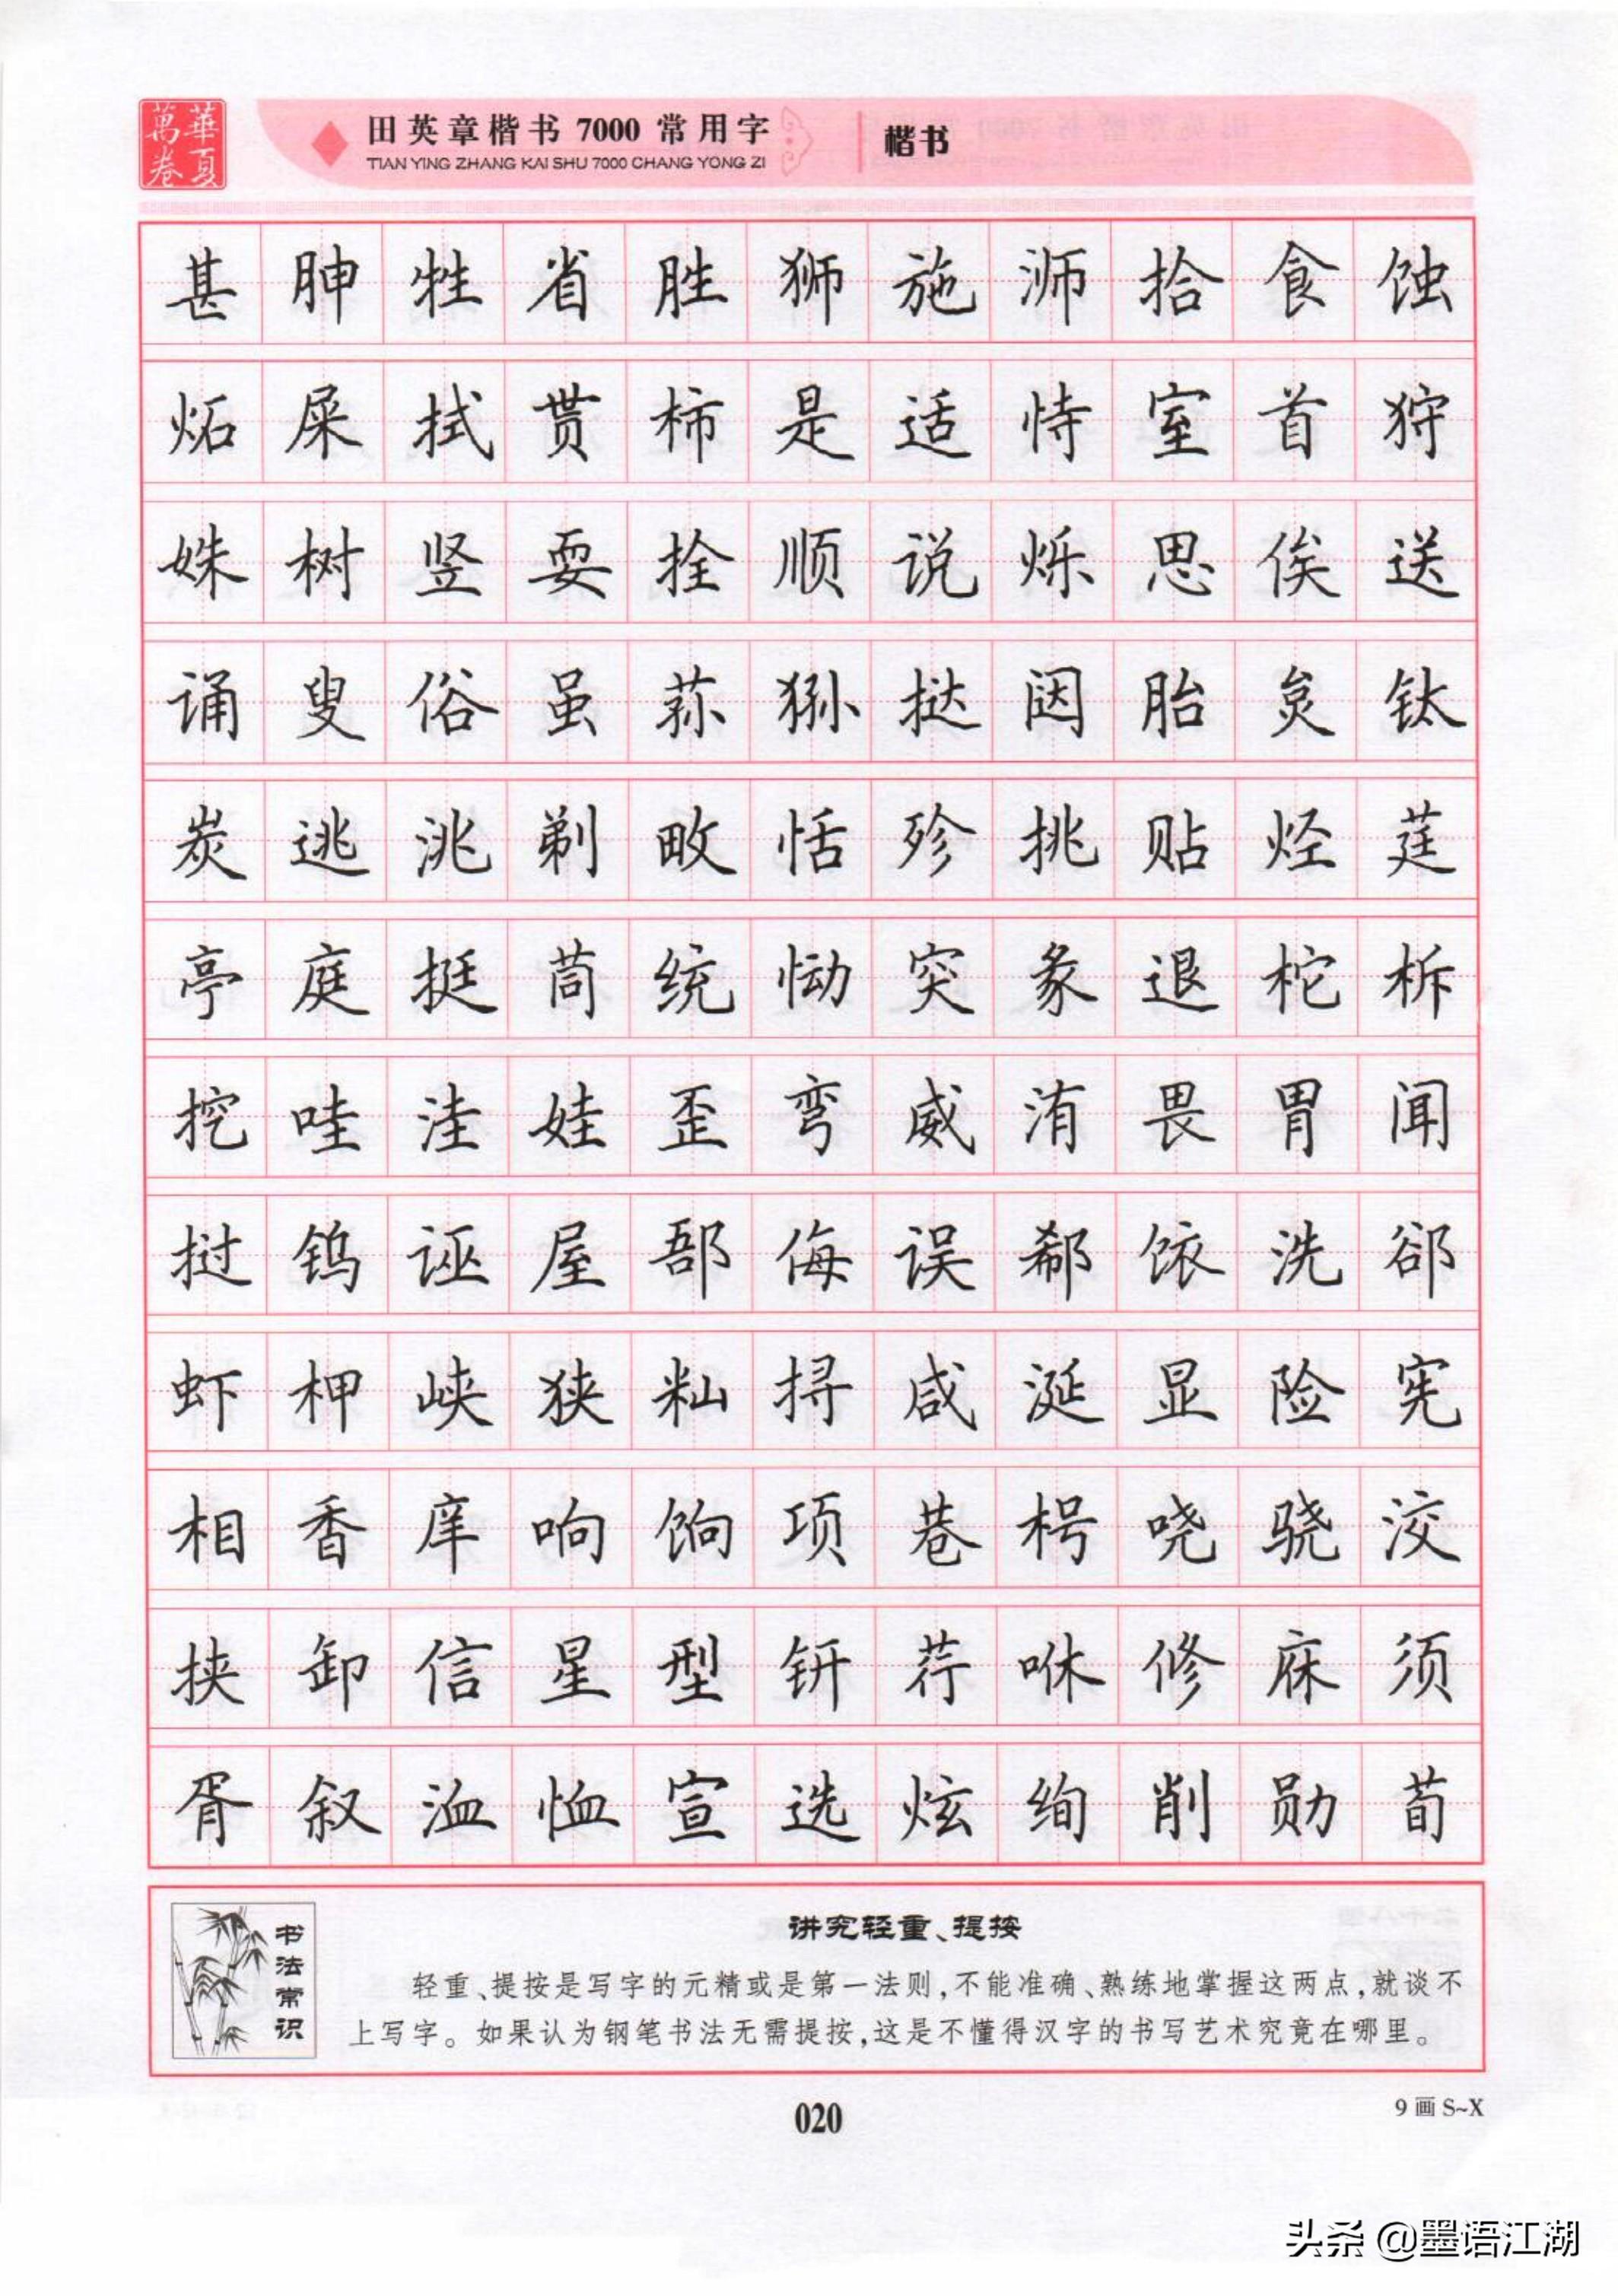 華夏萬卷
田英章楷书 7000 常用字
TIAN YING ZHANG KAI SHU 7000 CHANG YONG ZI
楷书
甚 胂 牲 省 胜 狮 施 浉 拾 食 蚀
炻 屎 拭 贳 柿 是 适 恃 室 首 狩
姝 树 竖 耍 拴 顺 说 烁 思 俟 送
诵 叟 俗 虽 荪 狲 挞 闼 胎 炱 钛
炭 逃 洮 剃 畋 恬 殄 挑 贴 烃 莛
亭 庭 挺 茼 统 恸 突 彖 退 柁 柝
挖 哇 洼 娃 歪 弯 威 洧 畏 胃 闻
挝 钨 诬 屋 郚 侮 误 郗 饻 洗 郤
虾 柙 峡 狭 籼 挦 咸 涎 显 险 宪
相 香 庠 响 饷 项 巷 枵 哓 骁 洨
挟 卸 信 星 型 钘 荇 咻 修 庥 须
胥 叙 洫 恤 宣 选 炫 绚 削 勋 荀
书法常识
讲究轻重、提按
轻重、提按是写字的元精或是第一法则,不能准确、熟练地掌握这两点,就谈不
上写字。如果认为钢笔书法无需提按,这是不懂得汉字的书写艺术究竟在哪里。
020
9 画 S~X
头条 @墨语江湖